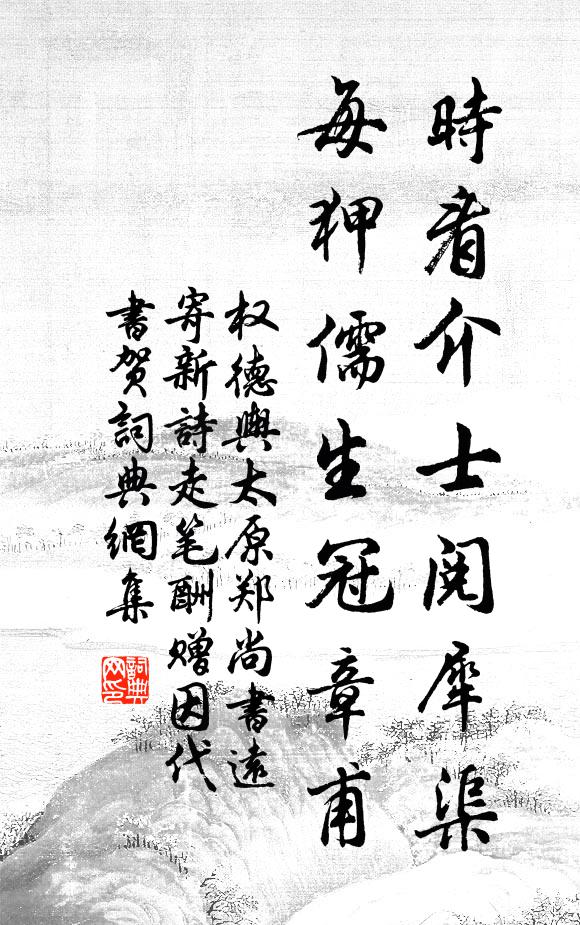 時看介士閱犀渠
每狎儒生冠章甫
权德與太原郑尚書遠
寄新詩走笔酬赠因代
書贺詞典網集
詞典
网印